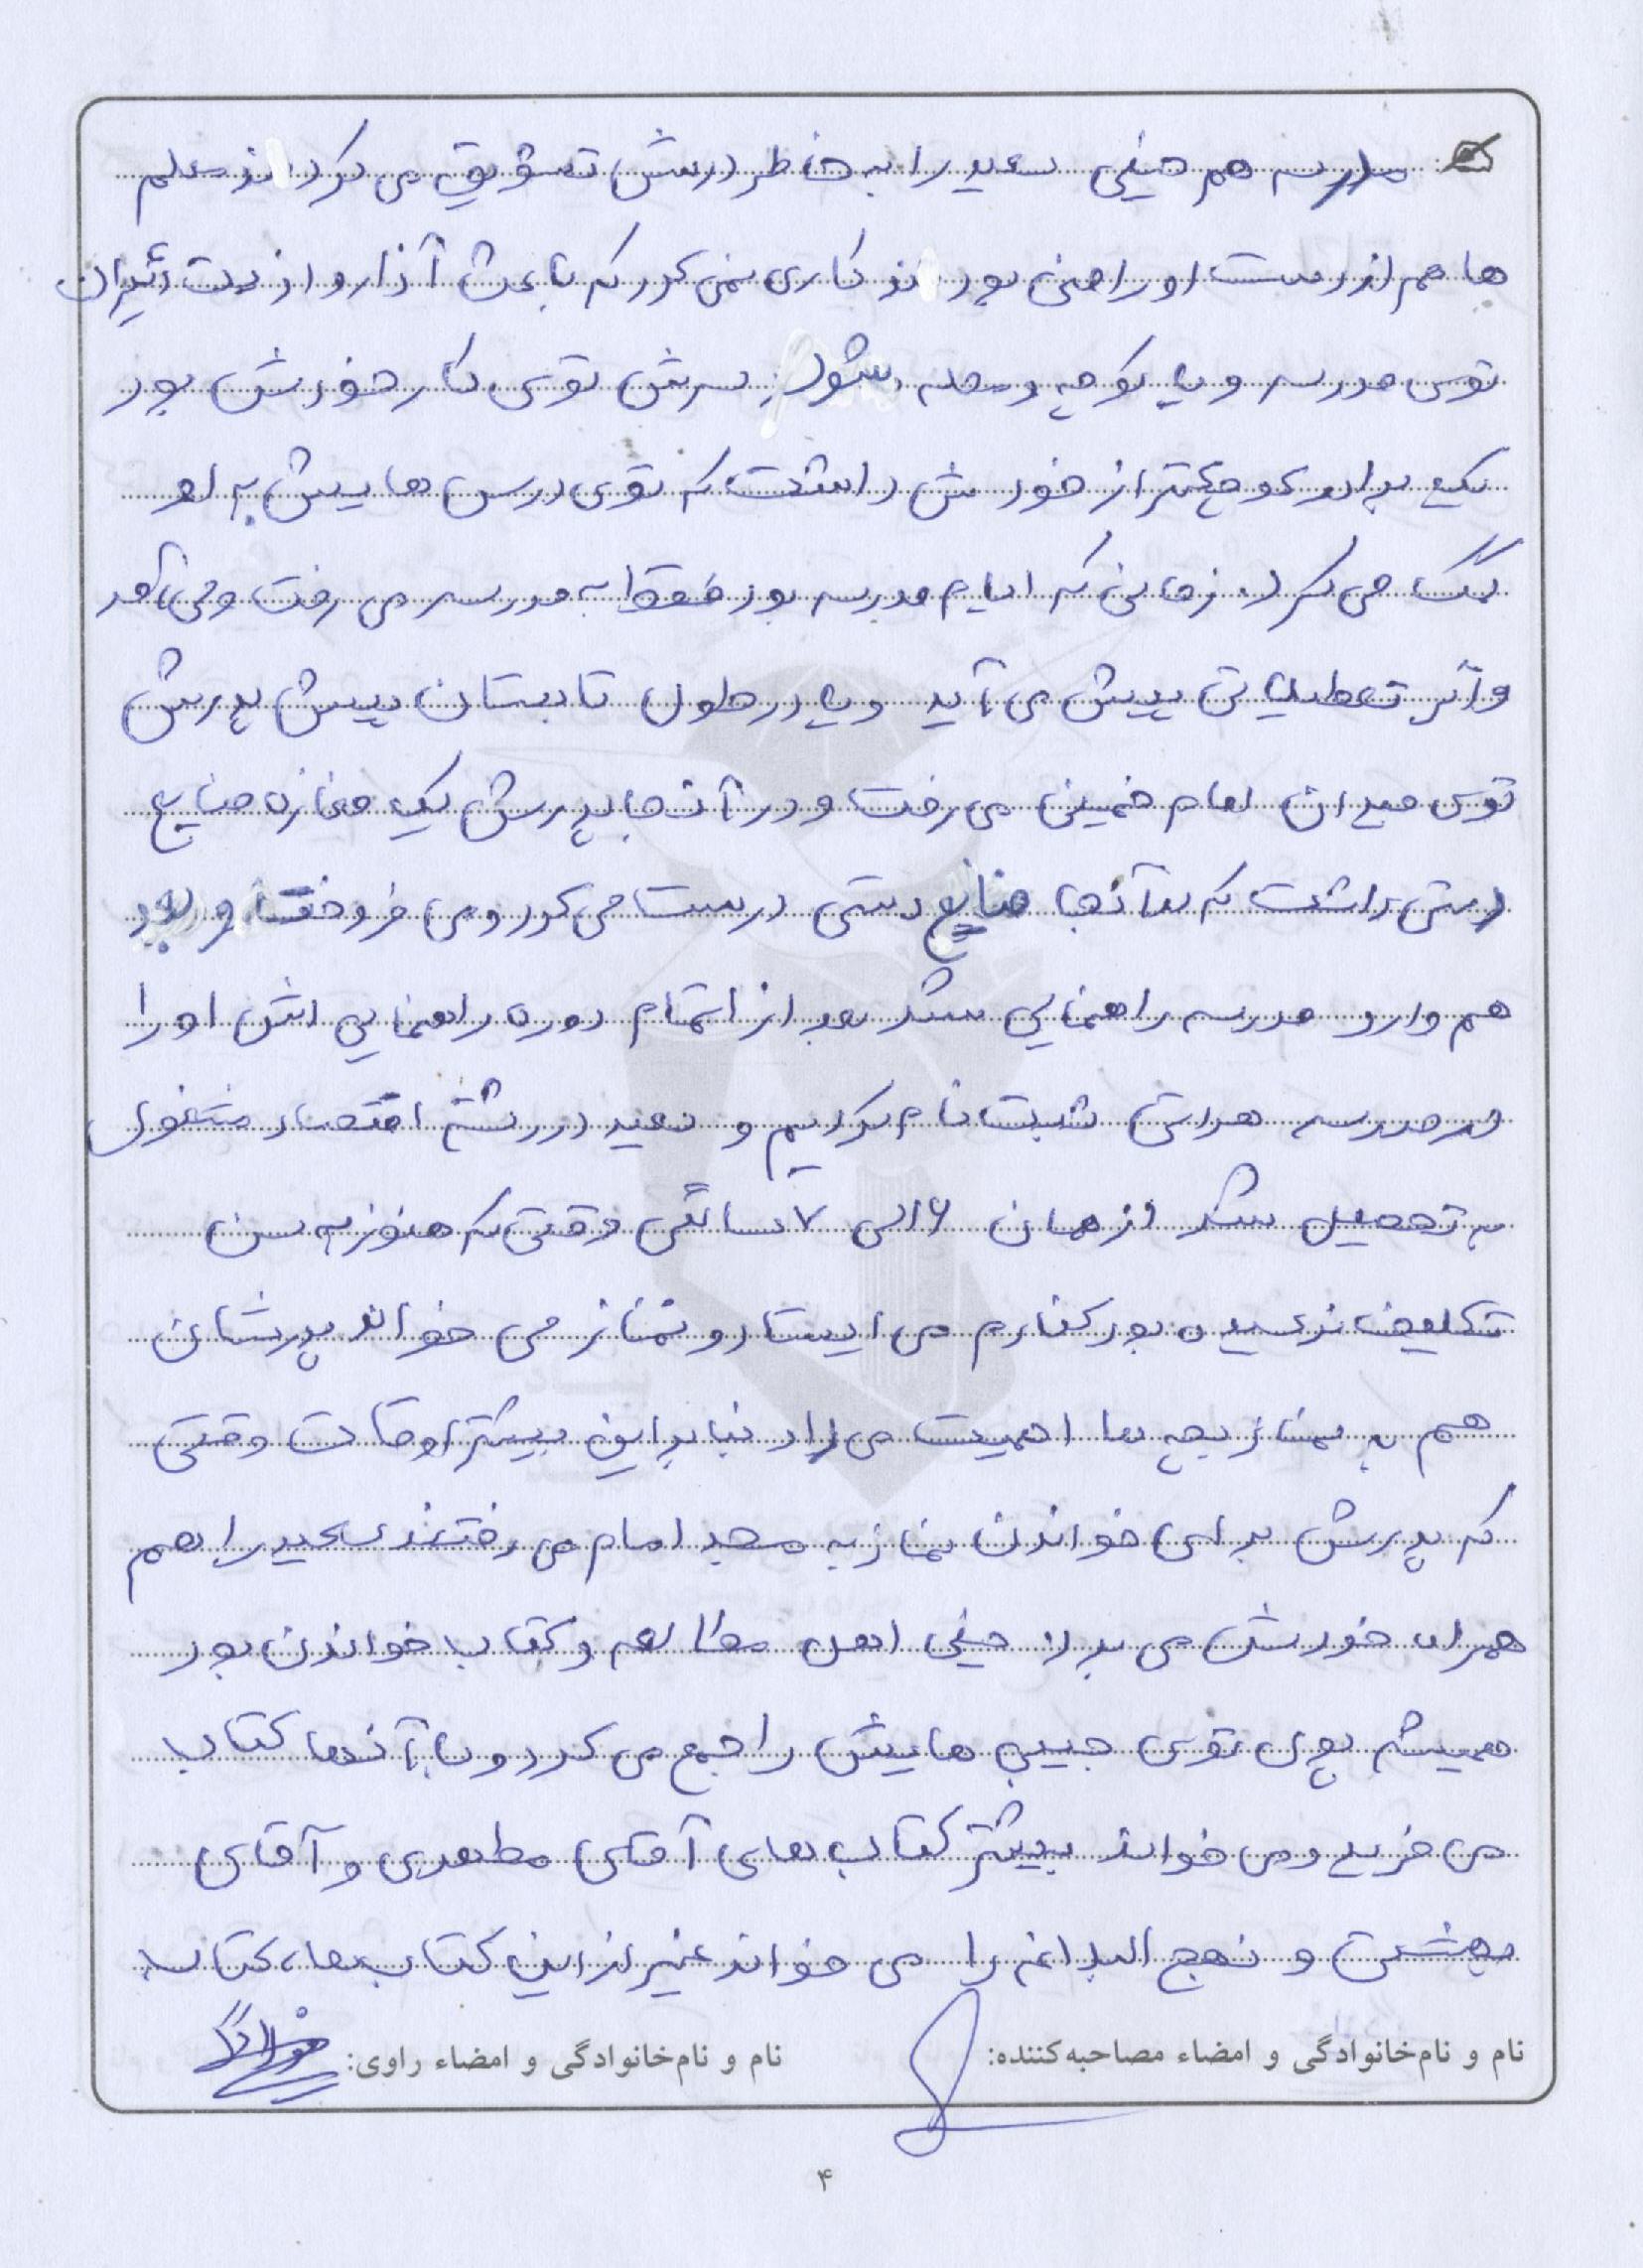 مدرسه هم خیلی سعید را به خاطر درسش تشویق می کردند معلم
ها هم از دست او راضی بودند کاری نمی کرد که باعث آذار و اذیت دیگران
توی مدرسه و یا کوچه و محله شود. سرش توی کار خودش بود
یک برادر کوچکتر از خودش داشت که توی درس هایش به او
کمک می کرد. زمانی که ایام مدرسه بود فقط به مدرسه می رفت و می آمد
و اگر تعطیلاتی پیش می آید و یا در طول تابستان پیش پدرش
توی میدان امام خمینی می رفت و در آنجا پدرش یک مغازه صنایع
دستی داشت که در آنجا صنایع دستی درست می کرد و می فروخت و بعد
هم وارد مدرسه راهنمایی شد بعد از اتمام دوره راهنمایی اش او را
در مدرسه هراتی ثبت نام کردیم و سعید در رشته اقتصاد مشغول
به تحصیل شد از همان ۶ الی ۷ سالگی وقتی که هنوز به سن
تکلیف نرسیده بود کنارم می ایستاد و نماز می خواند پدرشان
هم به نماز بچه ها اهمیت می داد بنابراین بیشتر اوقات وقتی
که پدرش برای خواندن نماز به مسجد امام می رفتند سعید را هم
همراه خودش می برد. خیلی اهل مطالعه و کتاب خواندن بود
همیشه پول توی جیبی هایش را جمع می کرد و با آنها کتاب
می خرید و می خواند بیشتر کتاب های آقای مطهری و آقای
بهشتی و نهج البلاغه را می خواند غیر از این کتاب ها، کتاب
نام و نام‌خانوادگی و امضاء مصاحبه‌کننده: نام و نام‌خانوادگی و امضاء راوی:
۴